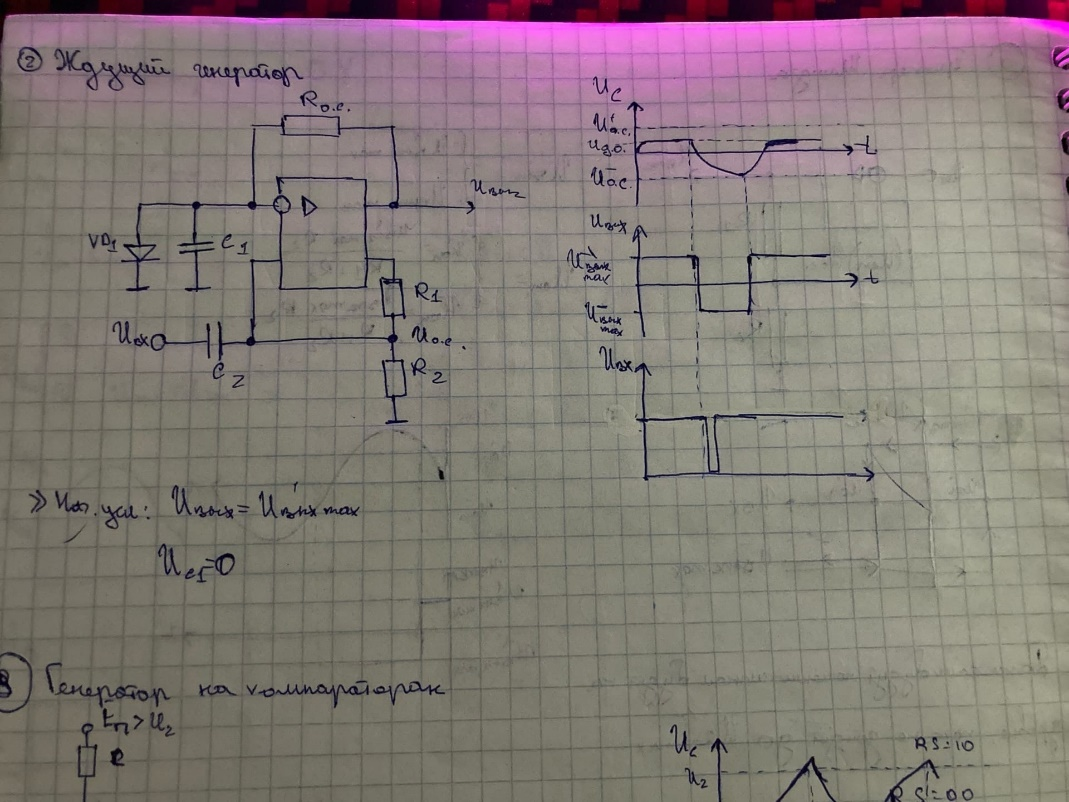 ② Ждущий генератор
Rо.с.
Uвых
VD1
C1
R1
Uвх
Uо.с.
C2
R2
Uc
U⁺о.с.
Uд.о.
t
U⁻о.с.
Uвых
U⁺вых max
t
U⁻вых max
Uвх
Нач. усл: Uвых = U⁺вых max
Uc1=0
3 Генератор на компараторах
Eп > U2
R
Uc
U2
RS=10
RS=00